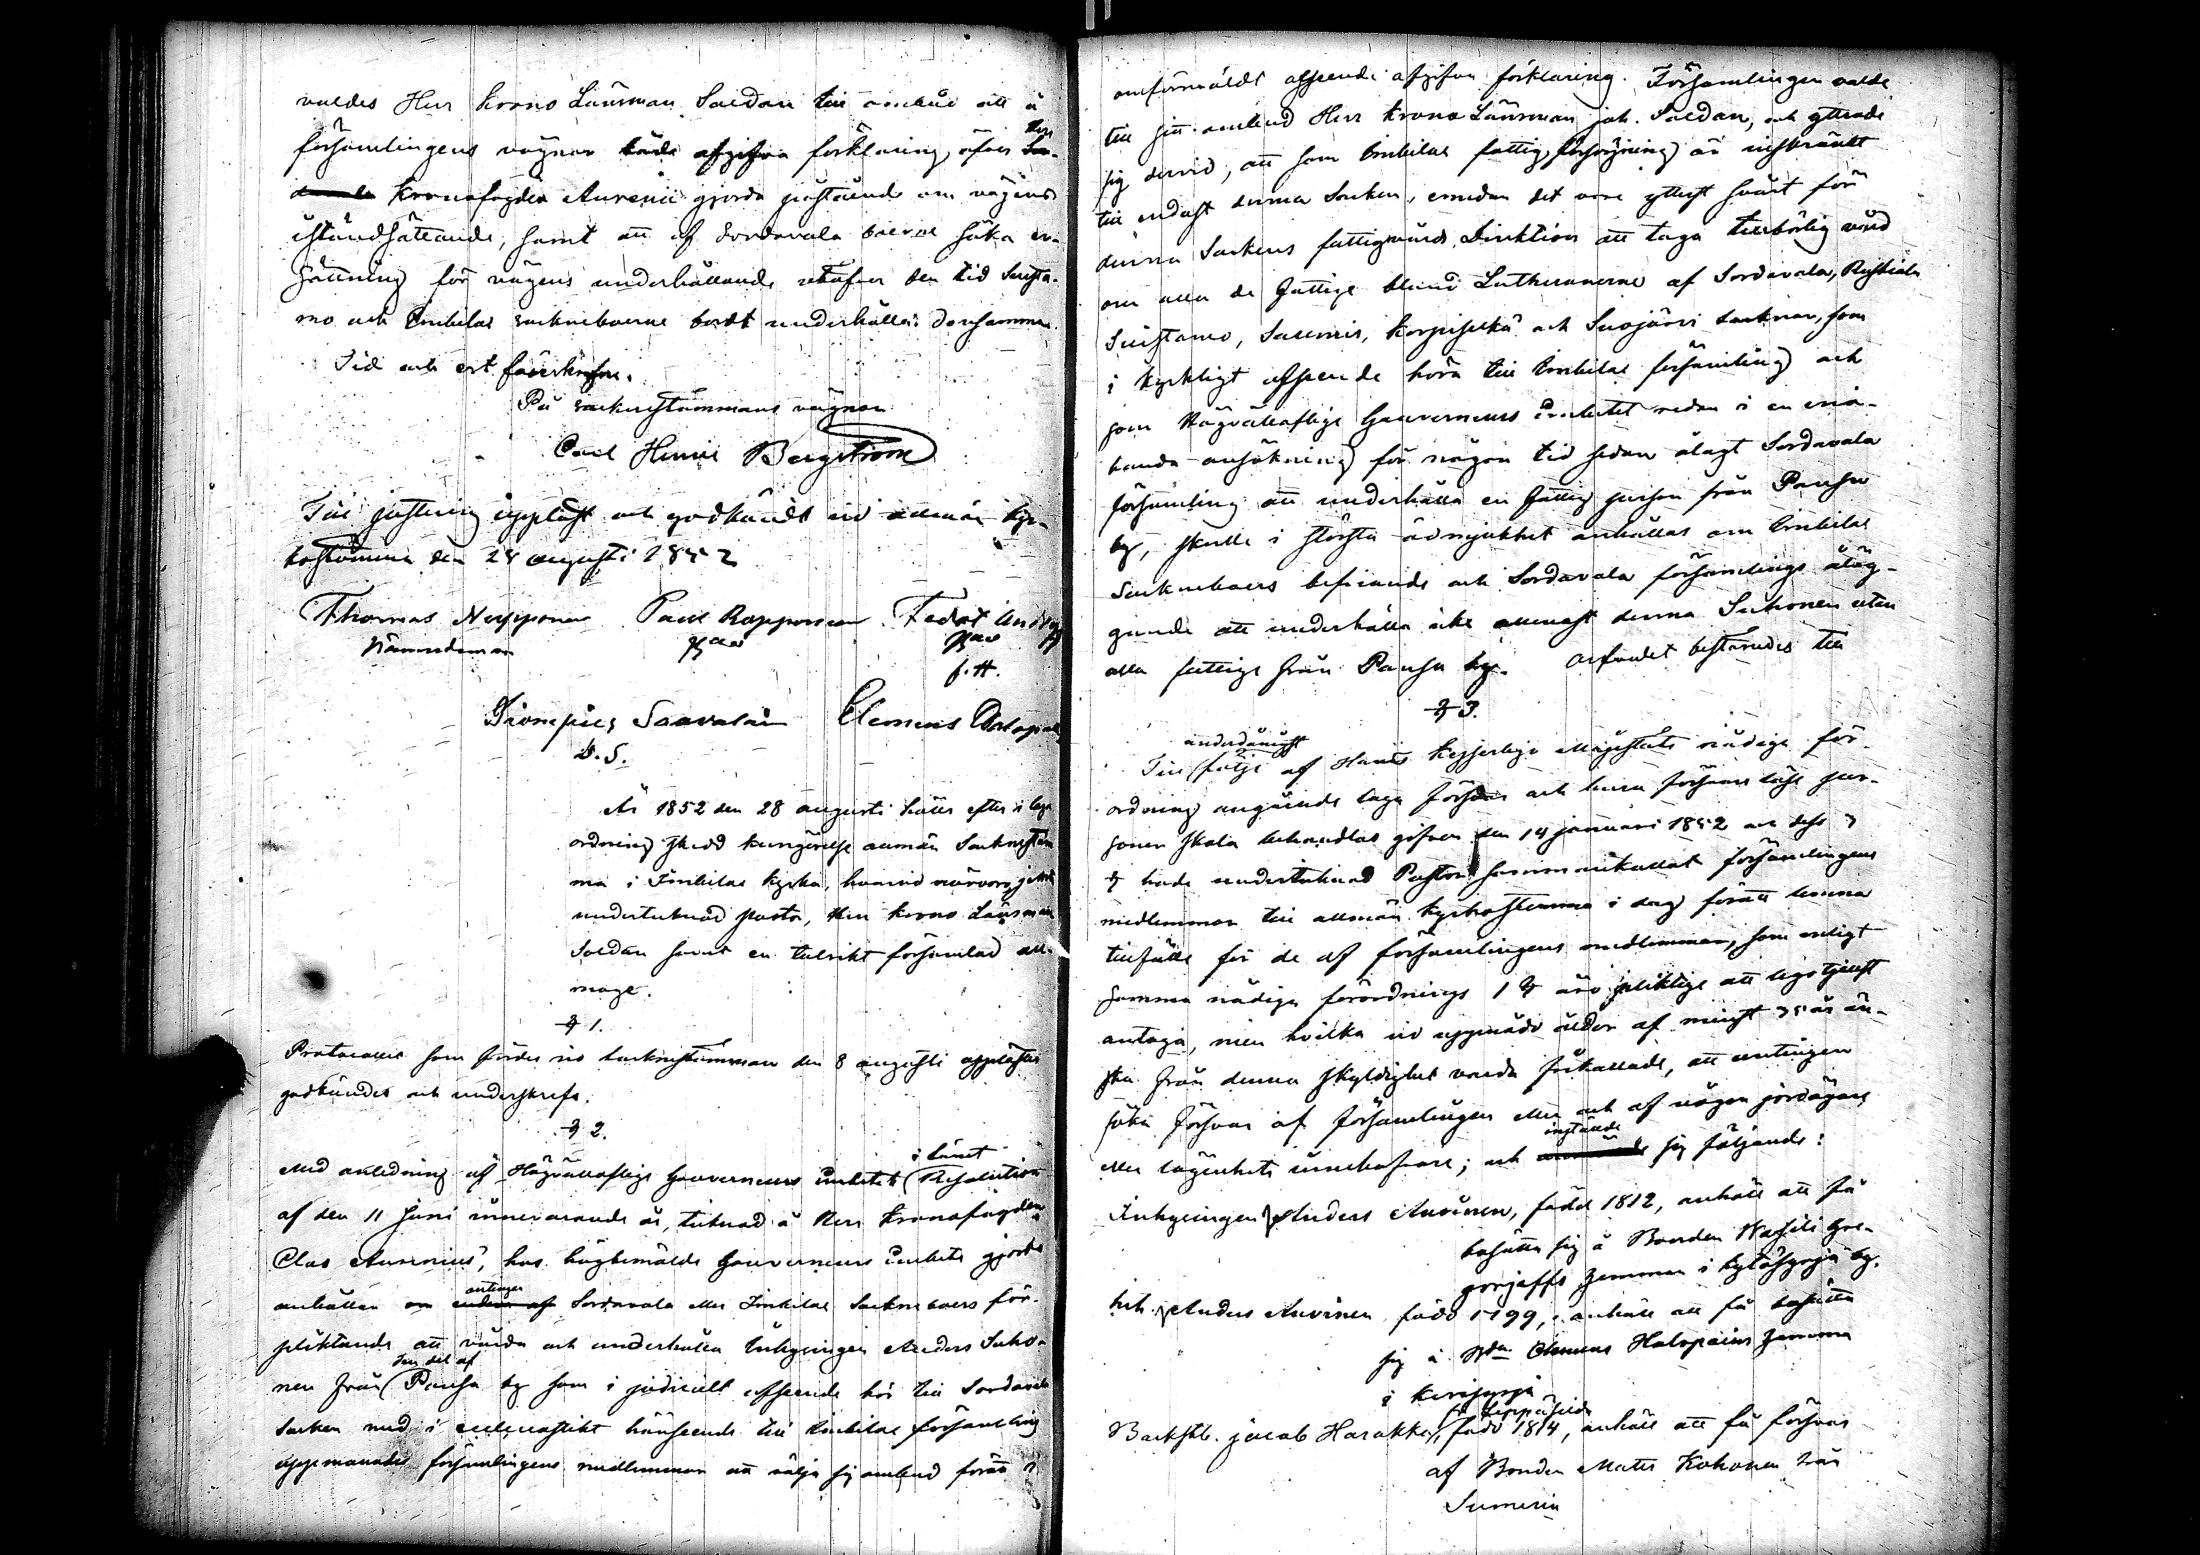 valdes Herr Krono Länsman Soldan till ombud att å
församlingens vägnar både afgifva förklaring öfver Herr
Kronofogden Aurenii gjorda påstående om vägens
iståndsättande, samt att af Sordavala boerne söka er-
sättning för vägens underhållande utöfver den tid Suista-
mo och Imbilax socknеboerne bordt underhålla densamma.
Tid och ort som förr skrifne.
På sockenstämmans vägnar
Carl Henric Bergström
Till justering uppläst och godkändt vid allmän kyr-
kostämma den 28 augusti 1852
Thomas Nupponen Paul Rapponen Fedot
Nämndeman
f. H.
Clemens Halopainen
D. S.
År 1852 den 28 augusti hölls efter i laga
ordning skedd kungörelse allmän Sockenstäm
ma i Imbilax kyrka, hvarvid närvoro jemte
undertecknad pastor, Herr Krono Länsman
Soldan samt en talrikt församlad all-
moge.
§ 1.
Protocollet som fördes vid sockenstämman den 8 augusti upplästes
godkändes och underskrefs.
§ 2.
Med anledning af Högvällofliga Gouverneurs Embetets i länet Resolution
af den 11 Juni innevarande år, tecknad å Herr Kronofogden
Clas Aurenius, hos högbemälde Gouverneurs Embete gjorda
anhållan om antingen Sordavala eller Imbilax Sockneboers för-
pliktande att vårda och underhålla Inhysingen Anders Suho-
nen från den del af Pansu by som i judicielt afseende hör till Sordavala
Socken med i ecclesiastikt hänseende till Imbilax församling
uppmanades församlingens medlemmar att välja sig ombud föratt i
omförmäldt afseende afgifva förklaring. Församlingen valde
till sitt ombud Herr Krono Länsman Joh. Soldan, och yttrade
sig dervid, att som Imbilax fattigförsörjning är inskränkt
till endast denna Socken, emedan det vore ytterst svårt för
denna Sockens fattigvårds Direktion att taga tillbörlig vård
om alla de fattige bland Lutheranerne af Sordavala, Ruskiala
Suistamo, Salmis, Korpiselkä och Suojärvi socknar, som
i kyrkligt afseende höra till Imbilax församling och
som Högvällofliga Gouverneurs Embetet redan i en ena-
handa ansökning för någon tid sedan ålagt Sordavala
församling att underhålla en fattig person från Pansu
by, skulle i största ödmjukhet anhållas om Imbilax
Sockneboers befriande och Sordavala församlings åläg-
gande att underhålla icke allenast denna Suhonen utan
alla fattige från Pansu by. Arfvodet bestämdes till
§ 3.
Till underdånigst följe af Hans Kejserliga Majestäts nådiga för-
ordning angående laga försvar och huru försvarslöse per-
soner skola behandlas gifven den 19 januari 1852 och dess 3
§ hade undertecknad Pastor sammankallat församlingens
medlemmar till allmän kyrkostämma i dag föratt lemna
tillfälle för de af församlingens medlemmar, som enligt
samma nådiga förordnings 1 § äro pliktige att legotjenst
antaga, men hvilka vid uppnådd ålder af minst 35 år ön-
ska från denna skyldighet varda förskallade, att antingen
söka försvar af församlingen eller och af någon jordägare
eller lägenhets innehafvare; och inställde sig följande:
Inhysingen Anders Auvinen, född 1812, anhöll att få
bosätta sig å Bonden Wasili Gre-
gorjeffs hemman i Kytösyrjä by.
Inh. Anders Auvinen född 1799, anhöll att få bosätta
sig å Ndn Clemens Halopains hemma
i Kirisyrjä
Backstl. Jacob Harakka, fr. Leppäsilda född 1814, anhöll att få försvar
af Bonden Matts Kohonen från
Sumeria